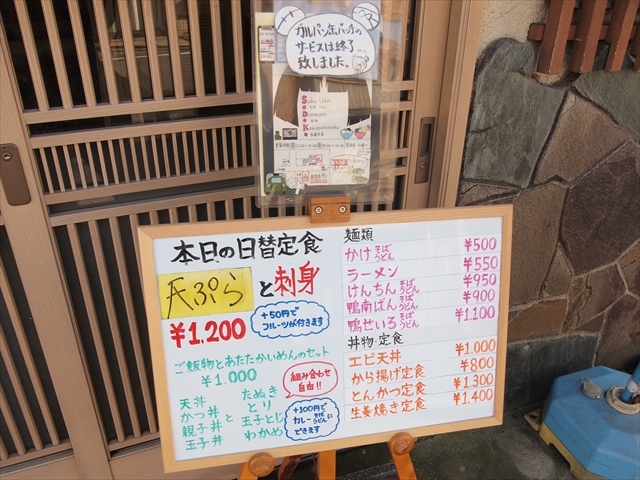 ガルパン缶バッチの
サービスは終了
致しました。
本日の日替定食
天ぷらと刺身
¥1,200
+50円で
フルーツが付きます
ご飯物とあたたかいめんのセット
¥1,000
組み合わせ
自由!!
天丼
かつ丼
親子丼
玉子丼
と
たぬき
とり
玉子とじ
わかめ
+100円で
カレーそばうどんに
できます
麺類
かけそばうどん ¥500
ラーメン ¥550
けんちんそばうどん ¥950
鴨南ばんそばうどん ¥900
鴨せいろそばうどん ¥1,100
丼物・定食
エビ天丼 ¥1,000
から揚げ定食 ¥800
とんかつ定食 ¥1,300
生姜焼き定食 ¥1,400